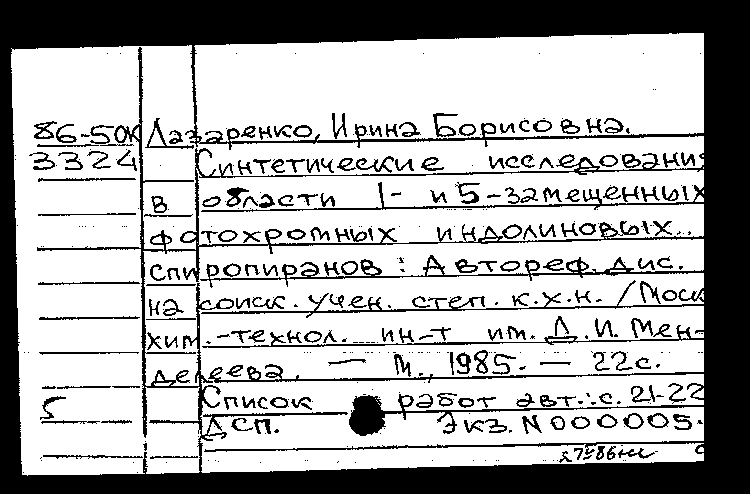 86-50К Лазаренко, Ирина Борисовна.
3324 Синтетические исследования
в области 1- и 5-замещенных
фотохромных индолиновых
спиропиранов: Автореф. дис.
на соиск. учен. степ. к.х.н. /Моск
хим.-технол. ин-т им. Д.И. Мен-
делеева. — М., 1985. — 22с.
5 Список работ авт.: с. 21-22
ДСП. Экз. N 000005.